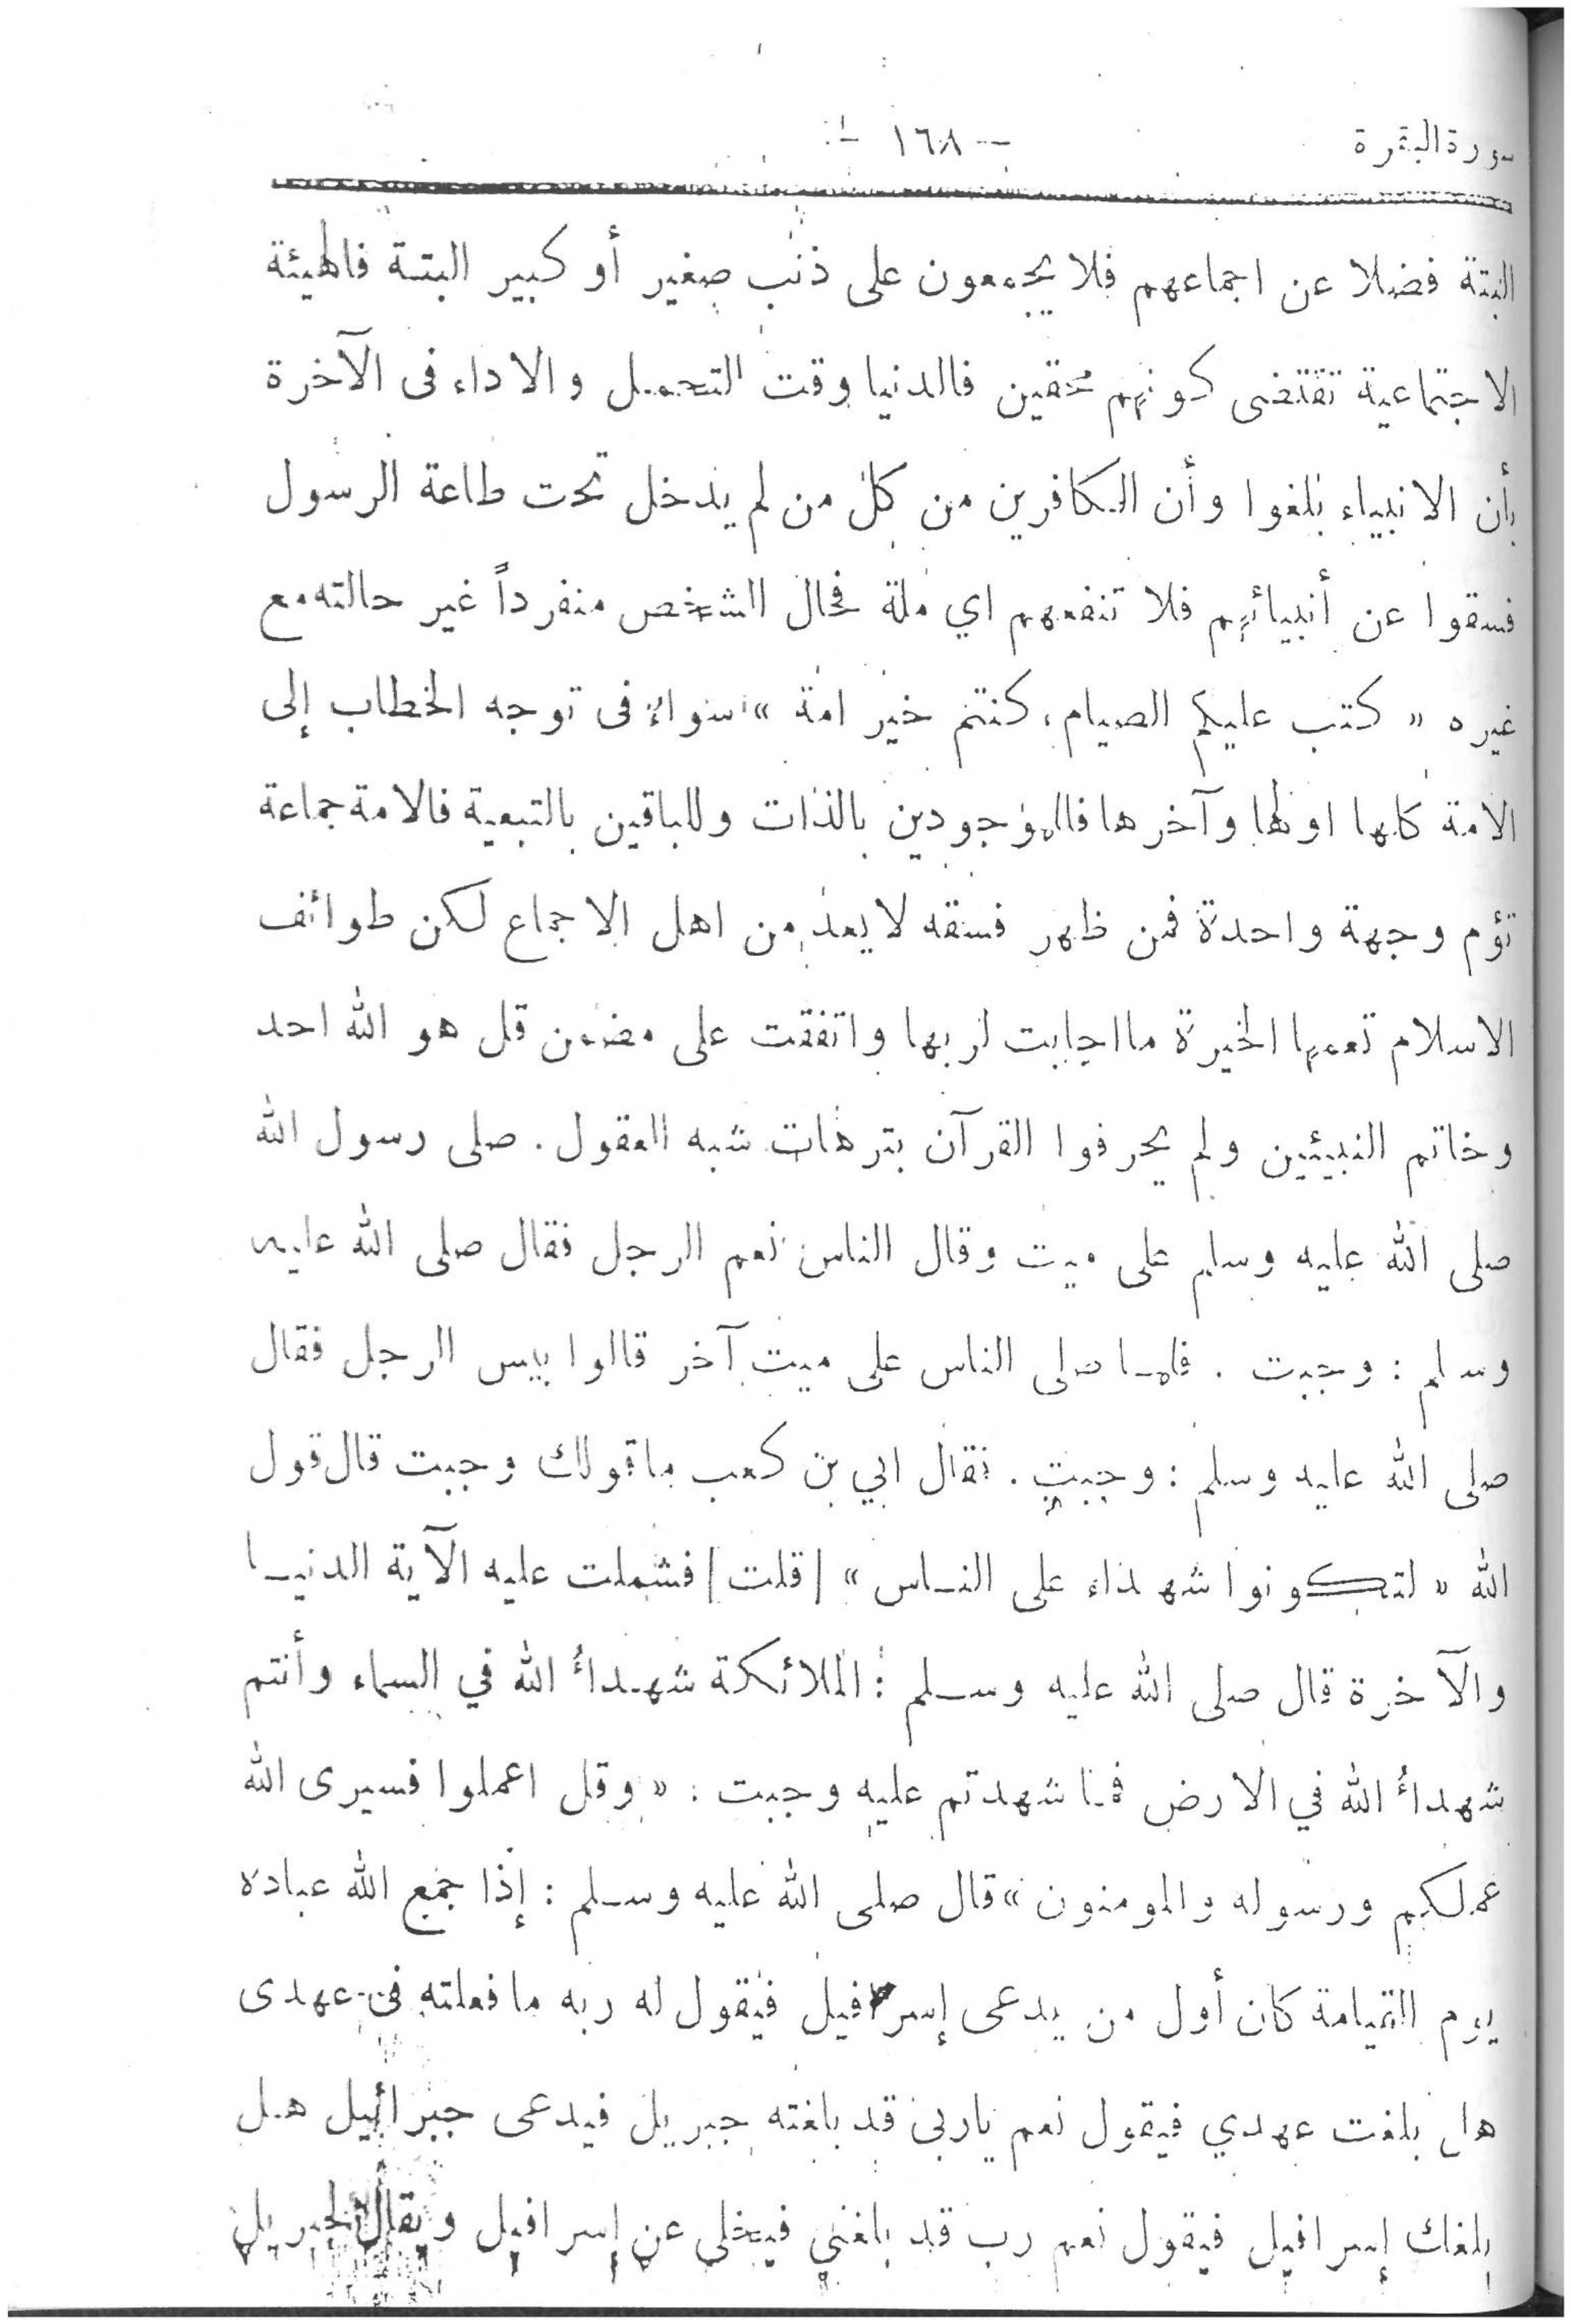 سورة البقرة
— ١٦٨ —
البتة فضلا عن اجماعهم فلا يجمعون على ذنب صغير أو كبير البتة فالهيئة
الاجتماعية تقتضى كونهم محقين فالدنيا وقت التحمل والاداء فى الآخرة
بأن الانبياء بلغوا وأن الكافرين من كل من لم يدخل تحت طاعة الرسول
فسقوا عن أنبيائهم فلا تنفعهم اي ملة فحال الشخص منفرداً غير حالته مع
غيره « كتب عليكم الصيام، كنتم خير امة » سواء فى توجه الخطاب إلى
الامة كلها اولها وآخرها فالموجودين بالذات وللباقين بالتبعية فالامة جماعة
تؤم وجهة واحدة فمن ظهر فسقه لا يعد من اهل الاجماع لكن طوائف
الاسلام تعمها الخيرة ما اجابت لربها واتفقت على مضمن قل هو الله احد
وخاتم النبيئين ولم يحرفوا القرآن بترهات شبه العقول. صلى رسول الله
صلى الله عليه وسلم على ميت وقال الناس نعم الرجل فقال صلى الله عليه
وسلم : وجبت . فلما صلى الناس على ميت آخر قالوا بيس الرجل فقال
صلى الله عليه وسلم : وجبت . فقال ابي بن كعب ما قولك وجبت قال قول
الله « لتكونوا شهداء على الناس » |قلت| فشملت عليه الآية الدنيا
والآخرة قال صلى الله عليه وسلم : الملائكة شهداءُ الله في السماء وأنتم
شهداءُ الله في الارض فما شهدتم عليه وجبت : « وقل اعملوا فسيرى الله
عملكم ورسوله والمومنون » قال صلى الله عليه وسلم : إذا جمع الله عباده
يوم القيامة كان أول من يدعى إسرافيل فيقول له ربه ما فعلته فى عهدى
هل بلغت عهدي فيقول نعم ياربى قد بلغته جبريل فيدعى جبرائيل هل
بلغك إسرافيل فيقول نعم رب قد بلغني فيخلى عن إسرافيل ويقال لجبريل